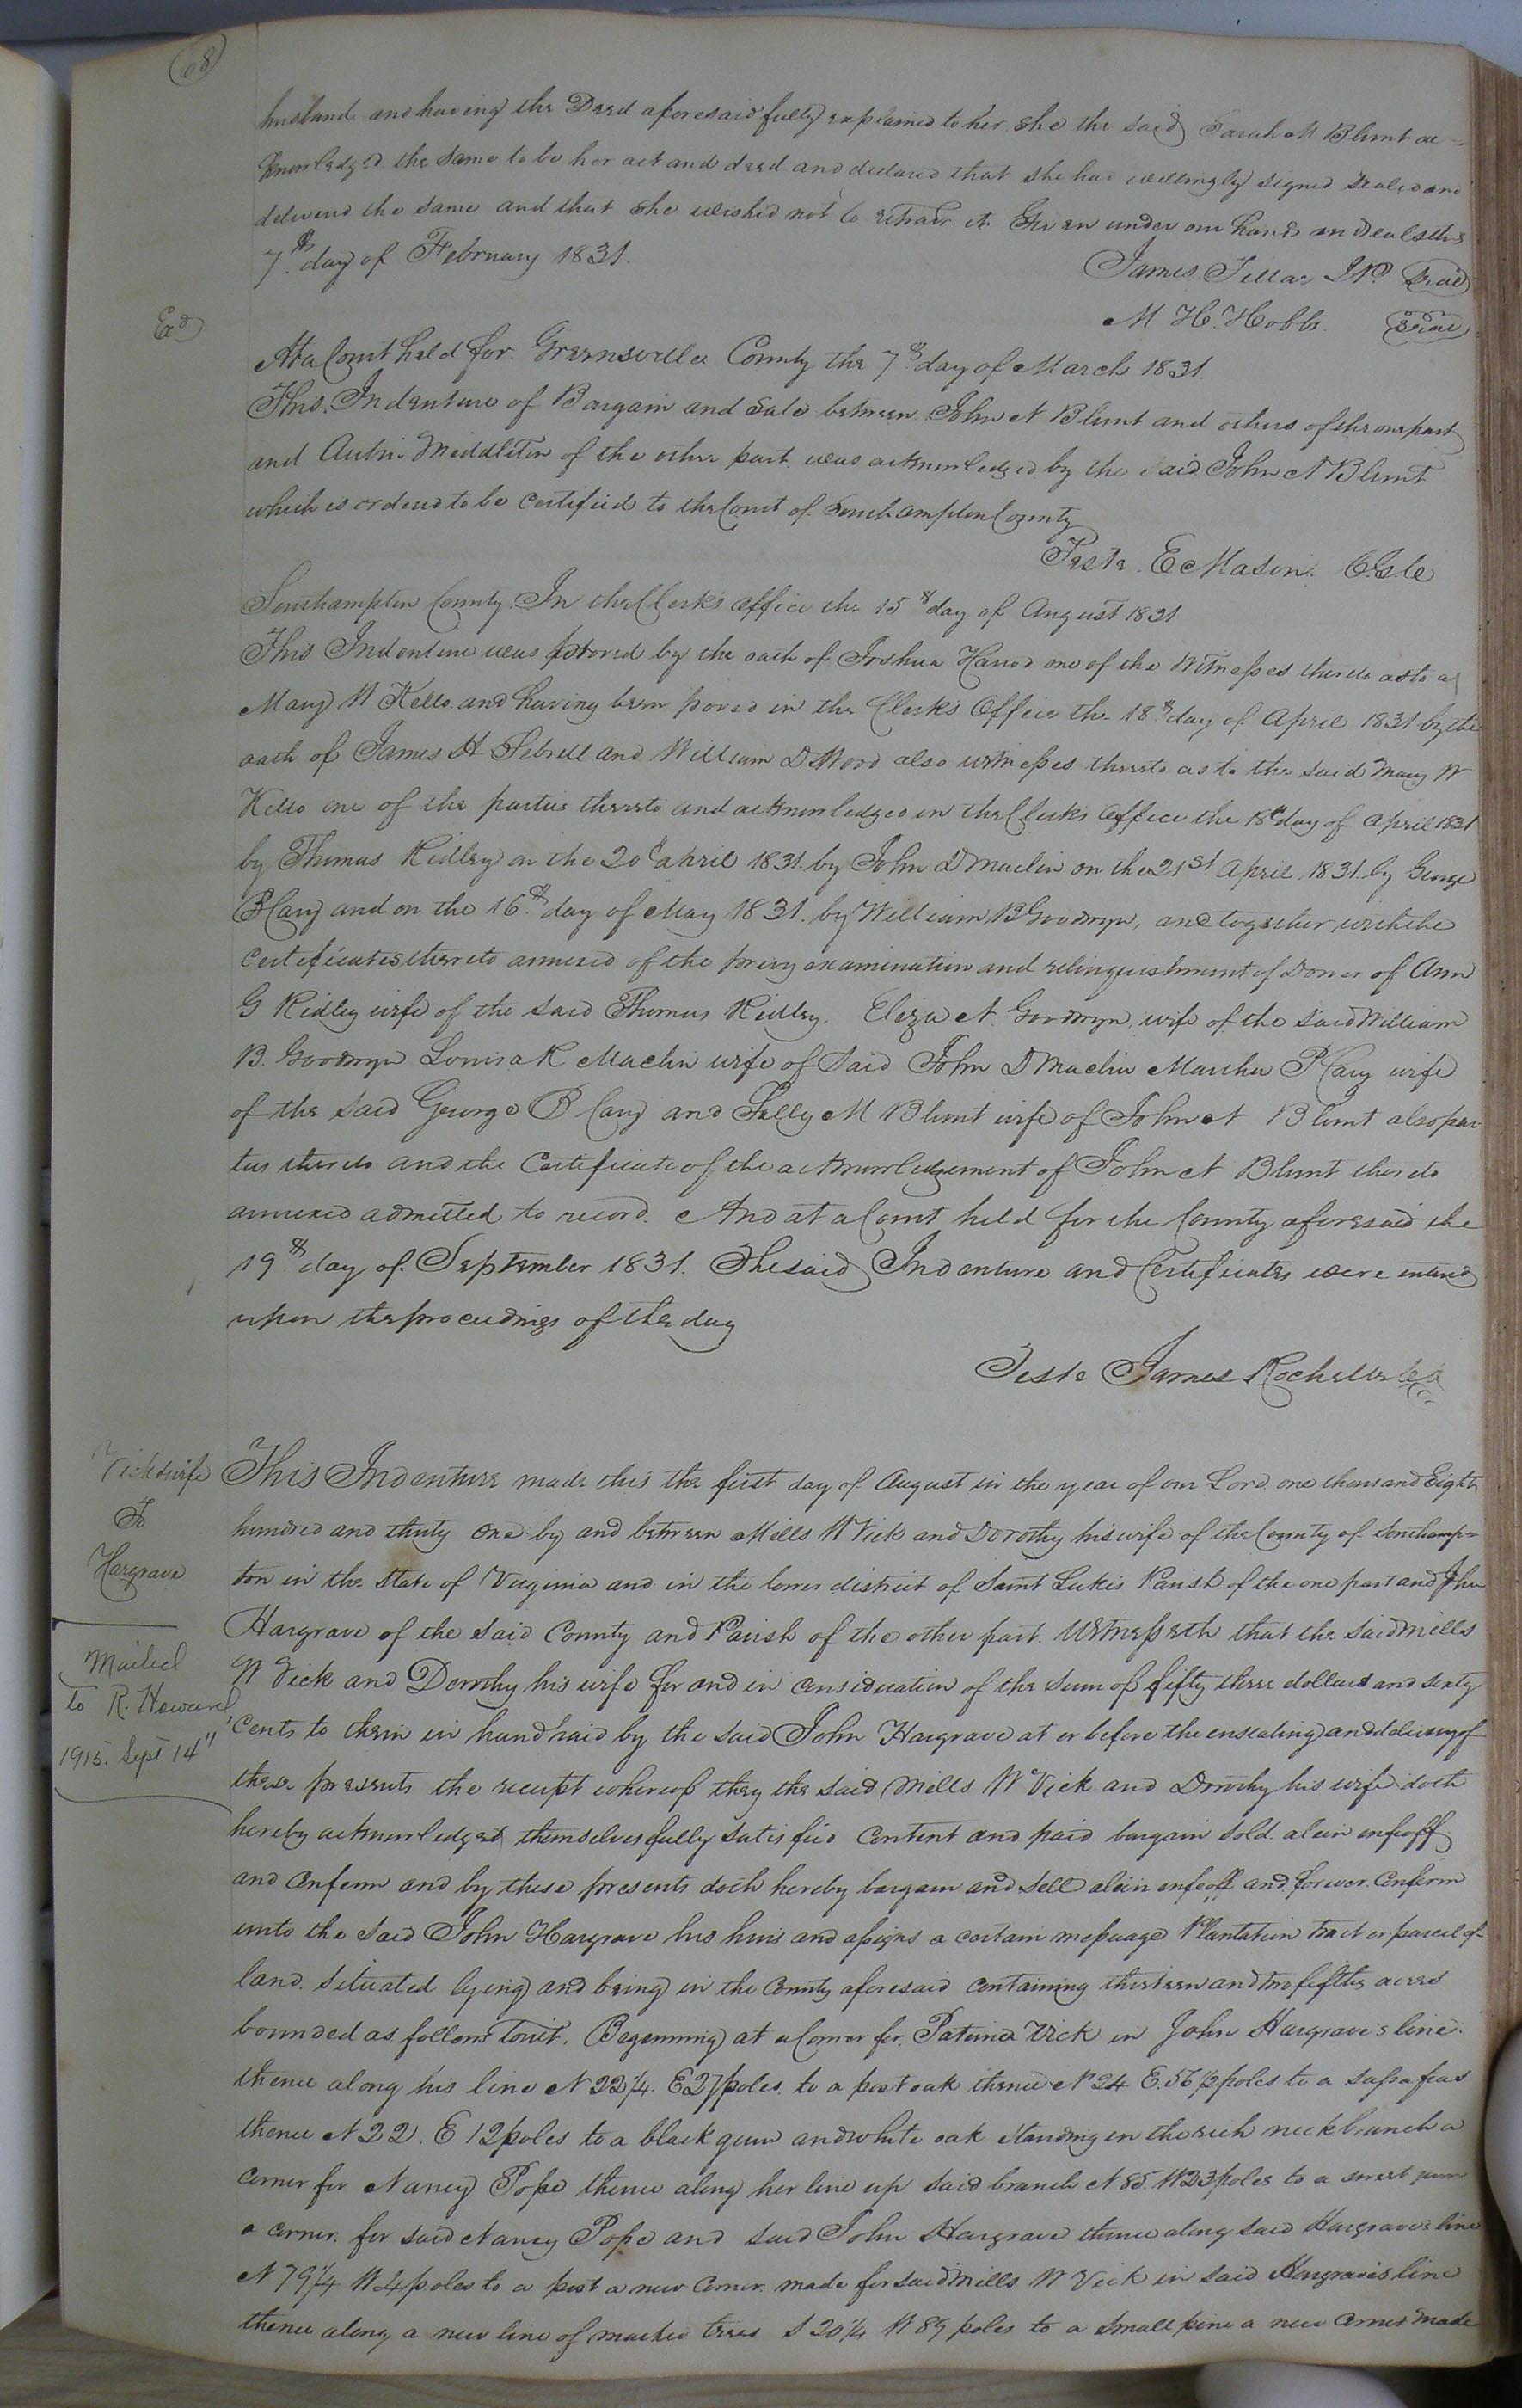 68
husband and having the Deed aforesaid fully explained to her she the said Sarah M Blunt ac=
knowledged the same to be her act and deed and declared that she had willingly signed sealed and
delivered the same and that she wished not to retract it Given under our hands and seals this
7th day of February 1831.
James Fillar JP. Seal
M H. Hobbs. Seal
Exd
At a Court held for Greensville County the 7th day of March 1831.
This Indenture of Bargain and Sale between John N Blunt and others of the one part
and Middleton of the other part was acknowledged by the said John N Blunt
which is ordered to be certified to the Court of Southampton County
Teste. E Mason.
Southampton County. In the Clerk's office the 15th day of August 1831
This Indenture was proved by the oath of Joshua one of the Witnesses thereto as to
Mary W Kello and having been proved in the Clerks Office the 18th day of April 1831 by the
oath of James H Sebrell and William D Hood also witnesses thereto as to the said Mary W
Kello one of the parties thereto and acknowledged in the Clerks office the 18th day of April 1831
by Thomas Ridley on the 20th april 1831. by John D Maclin on the 21st April 1831. by George
B Cary and on the 16th day of May 1831. by William B Goodwyn, and together with the
certificates thereto annexed of the privy examination and relinquishment of Dower of Ann
G Ridley wife of the said Thomas Ridley. Eliza A. Goodwyn, wife of the said William
B. Goodwyn Louisa R Maclin wife of said John D Maclin Martha P Cary wife
of the said George B Cary and Sally M Blunt wife of John N Blunt also par
ties thereto and the Certificate of the acknowledgement of John N Blunt thereto
annexed admitted to record. And at a Court held for the County aforesaid the
19th day of September 1831. The said Indenture and Certificates were entered
upon the proceedings of the day
Teste James Rochelle
Vick & wife
To
Hargrave
Mailed
to R. Howard
1915. Sept 14"
This Indenture made this the first day of August in the year of our Lord one thousand Eight
hundred and thirty one by and between Mills W Vick and Dorothy his wife of the County of Southamp=
ton in the State of Virginia and in the lower district of Saint Lukes Parish of the one part and John
Hargrave of the said County and Parish of the other part. Witnesseth that the said Mills
W Vick and Dorothy his wife for and in consideration of the sum of fifty three dollars and sixty
Cents to them in hand paid by the said John Hargrave at or before the ensealing and delivery of
these presents the receipt whereof they the said Mills W Vick and Dorothy his wife doth
hereby acknowledged themselves fully satisfied content and paid bargain sold. alein enfeoff
and confirm and by these presents doth hereby bargain and sell alein enfeoff and forever. Confirm
unto the said John Hargrave his heirs and assigns a certain messuage Plantation tract or parcel of
land. situated lying and being in the County aforesaid containing thirteen and two fifths acres
bounded as follows towit. Beginning at a Corner for. Vick in John Hargrave's line.
thence along his line N 22 1/4. E 27 poles. to a post oak thence N 24 E. 56 1/2 poles to a sassafras
thence N 22. E 12 poles to a black gum and white oak standing in the rich neck branch a
corner for Nancy Pope thence along her line up said branch N 85. W 23 poles to a sweet gum
a corner. for said Nancy Pope and said John Hargrave thence along said Hargraves line
N 79 1/4 W 4 poles to a post a new corner. made for said Mills W Vick in said Hargraves line
thence along a new line of marked trees S 20 1/4 W 89 poles to a small pine a new corner made